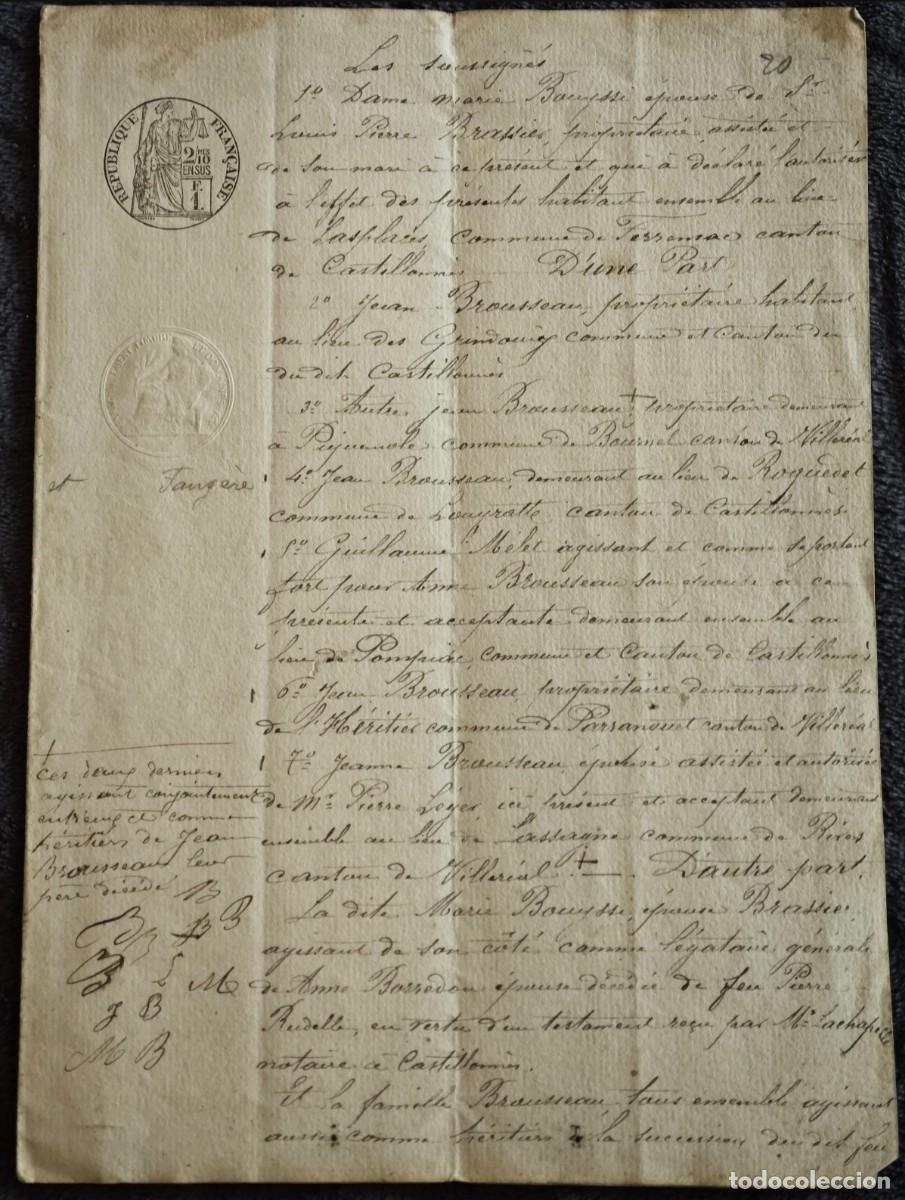 20
Les soussignés
1º Dame marie Bouyssi épouse de Sr
Louis Pierre Brassier, propriétaire, assistée et
de son mari à ce présent et qui a déclaré l'autoriser
à l'effet des présentes habitant ensemble au lieu
de Lasplaces, commune de Ferrensac canton
de Castillonnès D'une Part
2º Jean Brousseau, propriétaire habitant
au lieu des commune et Canton du
du dit Castillonnès
3º Autre jean Brousseau + propriétaire demeurant
à commune de Bournel canton de Villeréal
4º Jean Brousseau, demeurant au lieu de Roquedet
commune de Lougratte canton de Castillonnès
5º Guillaume Mélet agissant et comme se portant
fort pour Anne Brousseau son épouse à ce
présente et acceptante demeurant ensemble au
lieu de Pompiac, commune et Canton de Castillonnès
6º Jean Brousseau, propriétaire demeurant au lieu
de l'Héritier commune de Parranquet canton de Villeréal
7º Jeanne Brousseau, épouse assistée et autorisée
de Mr Pierre Leyes ici présent et acceptant demeurant
ensemble au lieu de Lassagne commune de Rives
canton de Villeréal + D'autre part.
La dite Marie Bouyssi, épouse Brassier,
agissant de son côté comme légataire générale
de Anne Borredon épouse décédée de feu Pierre
Redelle, en vertu d'un testament reçu par Me Lachapelle
notaire à Castillonnès.
Et la famille Brousseau tous ensemble agissant
aussi comme héritiers de la succession du dit feu
RÉPUBLIQUE FRANÇAISE
2/10
EN SUS
1 F.
et Faugère
+
ces deux derniers
agissant conjointement
entr'eux et comme
héritiers de Jean
Brousseau leur
père décédé
B
B B B B
B L M
J B
M B
todocoleccion
todocoleccion.net